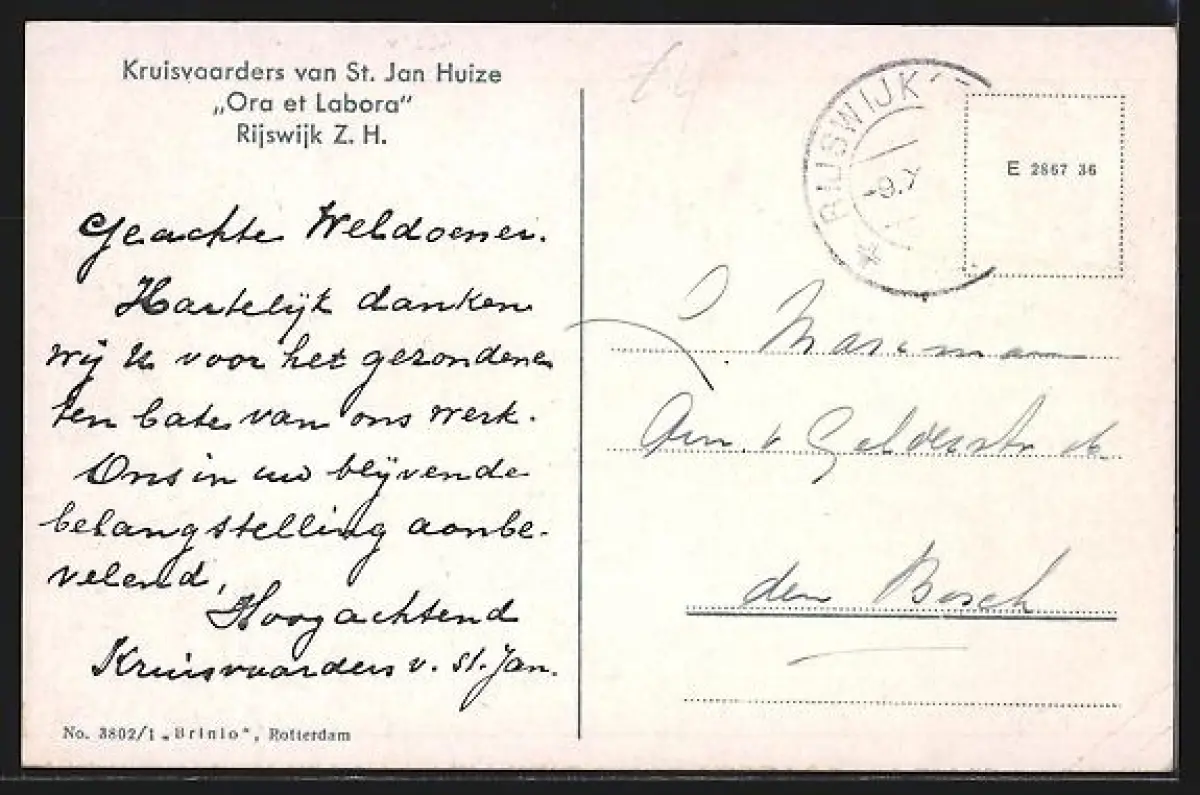 Kruisvaarders van St. Jan Huize
„Ora et Labora"
Rijswijk Z. H.
Geachte Weldoener.
Hartelijk danken
wij U voor het gezondene
ten bate van ons werk.
Ons in uw blijvende
belangstelling aanbe-
velend,
Hoogachtend
Kruisvaarders v. St. Jan.
No. 3802/1 „Brinio", Rotterdam
RIJSWIJK
-9.X
E 2867 36
v Gelderstr
den Bosch